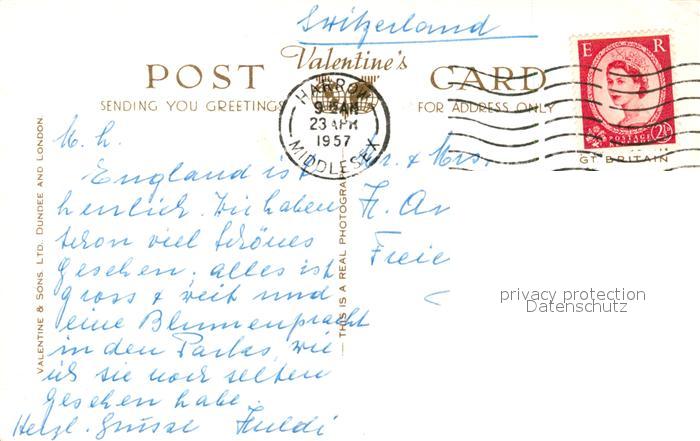 Switzerland
Valentine's
POST CARD
SENDING YOU GREETINGS FOR ADDRESS ONLY
E R
POSTAGE
2½
GT BRITAIN
HARROW
9 30AM
23 APR
1957
MIDDLESEX
M. L.
England ist
herrlich. Wir haben
schon viel schönes
gesehen; alles ist
gross + weit und
eine Blumenpracht
in den Parks, wie
ich sie noch selten
gesehen habe.
Herzl. Grüsse Huldi
Mr. & Mrs.
H.
Freie
VALENTINE & SONS. LTD. DUNDEE AND LONDON.
THIS IS A REAL PHOTOGRA
privacy protection
Datenschutz